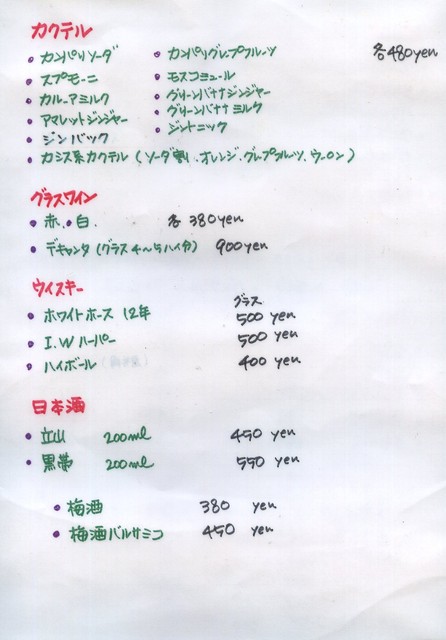 カクテル
・カンパリソーダ ・カンパリグレープフルーツ 各480yen
・スプモーニ ・モスコミュール
・カルーアミルク ・グリーンバナナジンジャー
・アマレットジンジャー ・グリーンバナナミルク
・ジンバック ・ジントニック
・カシス系カクテル(ソーダ割、オレンジ、グレープフルーツ、ウーロン)
グラスワイン
・赤、・白. 各380yen
・デキャンタ(グラス4〜5ハイ分) 900yen
ウイスキー
グラス
・ホワイトホース 12年 500 yen
・I.W ハーパー 500 yen
・ハイボール 400 yen
日本酒
・立山 200ml 450 yen
・黒帯 200ml 550 yen
・梅酒 380 yen
・梅酒バルサミコ 450 yen